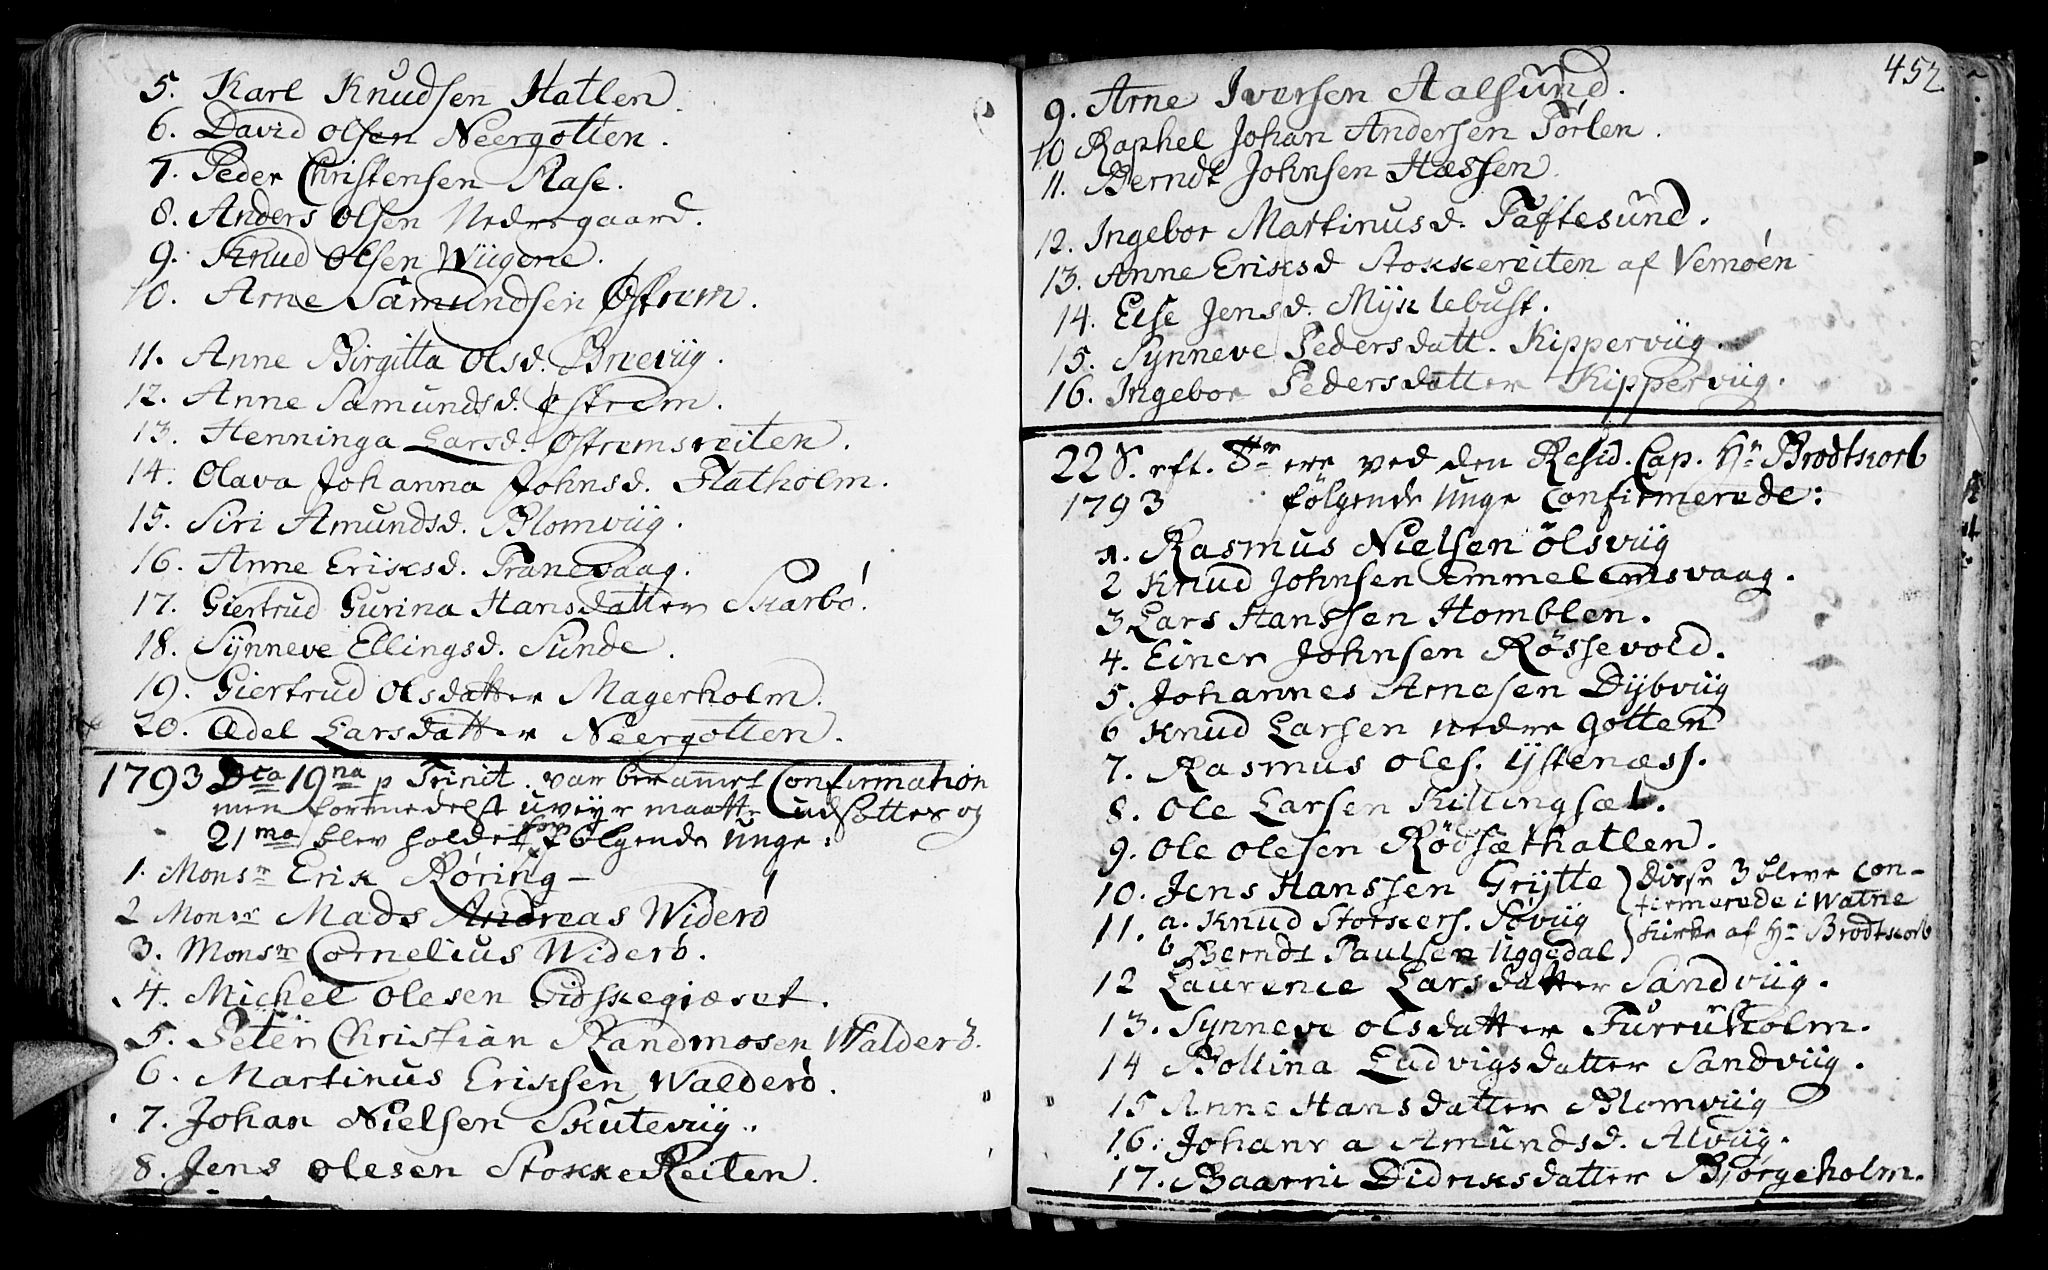 5. Karl Knudsen Hatlen.
6. David Olsen Neergotten.
7. Peder Christensen Aase.
8. Anders Olsen Nedregaard.
9. Knud Olsen Wiigene.
10. Arne Samundsen Østrem.
11. Anne Birgitta Olsd. Brevüg.
12. Anne Samundsd. Østrem.
13. Henninga Larsd. Østremsreiten.
14. Olava Johanna Johnsd. Flatholm.
15. Siri Amundsd. Blomvüg.
16. Anne Eriksd. Tranevaag.
17. Giertrud Gurina Hansdatter Skarbø.
18. Synneve Ellingsd. Sunde.
19. Giertrud Olsdatter Magerholm.
20. Ædel Larsdatter Neergotten.
1793 Dca 19na p Trinit. var berammet Confirmation
men formedelst uveyr maatte udsættes og
21ma blev holdet for følgende Unge:
1. Monsr Erik Røring –
2 Monsr Mads Andreas Widerø
3. Monsr Cornelius Widerø.
4. Michel Olesen Gidskegiæret.
5. Peter Christian Randmosen Walderö.
6. Martinus Eriksen Walderö.
7. Johan Nielsen Skutevüg.
8. Jens Olesen StokkeReiten.
452
9. Arne Iversen Aalsund.
10 Raphel Johan Andersen Tørlen.
11. Berndt Johnsen Hessen.
12. Ingebor Martinusd. Taftesund.
13. Anne Eriksd Stokkereiten af Vemøen
14. Else Jensd. Myklebust.
15. Synneve Pedersdatt. Kippervüg.
16. Ingebor Pedersdatter Kippervüg.
22 S. eft. Tr ere ved den Resid. Cap. Hr Brodtkorb
1793 følgende Unge Confirmerede:
1. Rasmus Nielsen Ølsvüg
2 Knud Johnsen Emmelemsvaag.
3 Lars Hanssen Homblen.
4. Einer Johnsen Røssevold.
5. Johannes Arnesen Dybvüg
6 Knud Larsen Nedre Gotten
7. Rasmus Oles. Ystenæss.
8. Ole Larsen Killingsæt.
9. Ole Olesen Rødsæthatlen.
10. Jens Hanssen Grytte } disse 3 bleve Con-
firmerede i Watne
11. a. Knud Storkers. Søvüg } Kirke af Hr Brodtkorb
b Berndt Paulsen Uggedal }
12 Laurence Larsdatter Sandvüg.
13. Synneve Olsdatter Furruholm.
14 Bollina Ludvigsdatter Sandvüg.
15 Anne Hansdatter Blomvüg
16. Johanna Amundsd. Alvüg.
17. Baarni Didriksdatter Bjørgeholm.